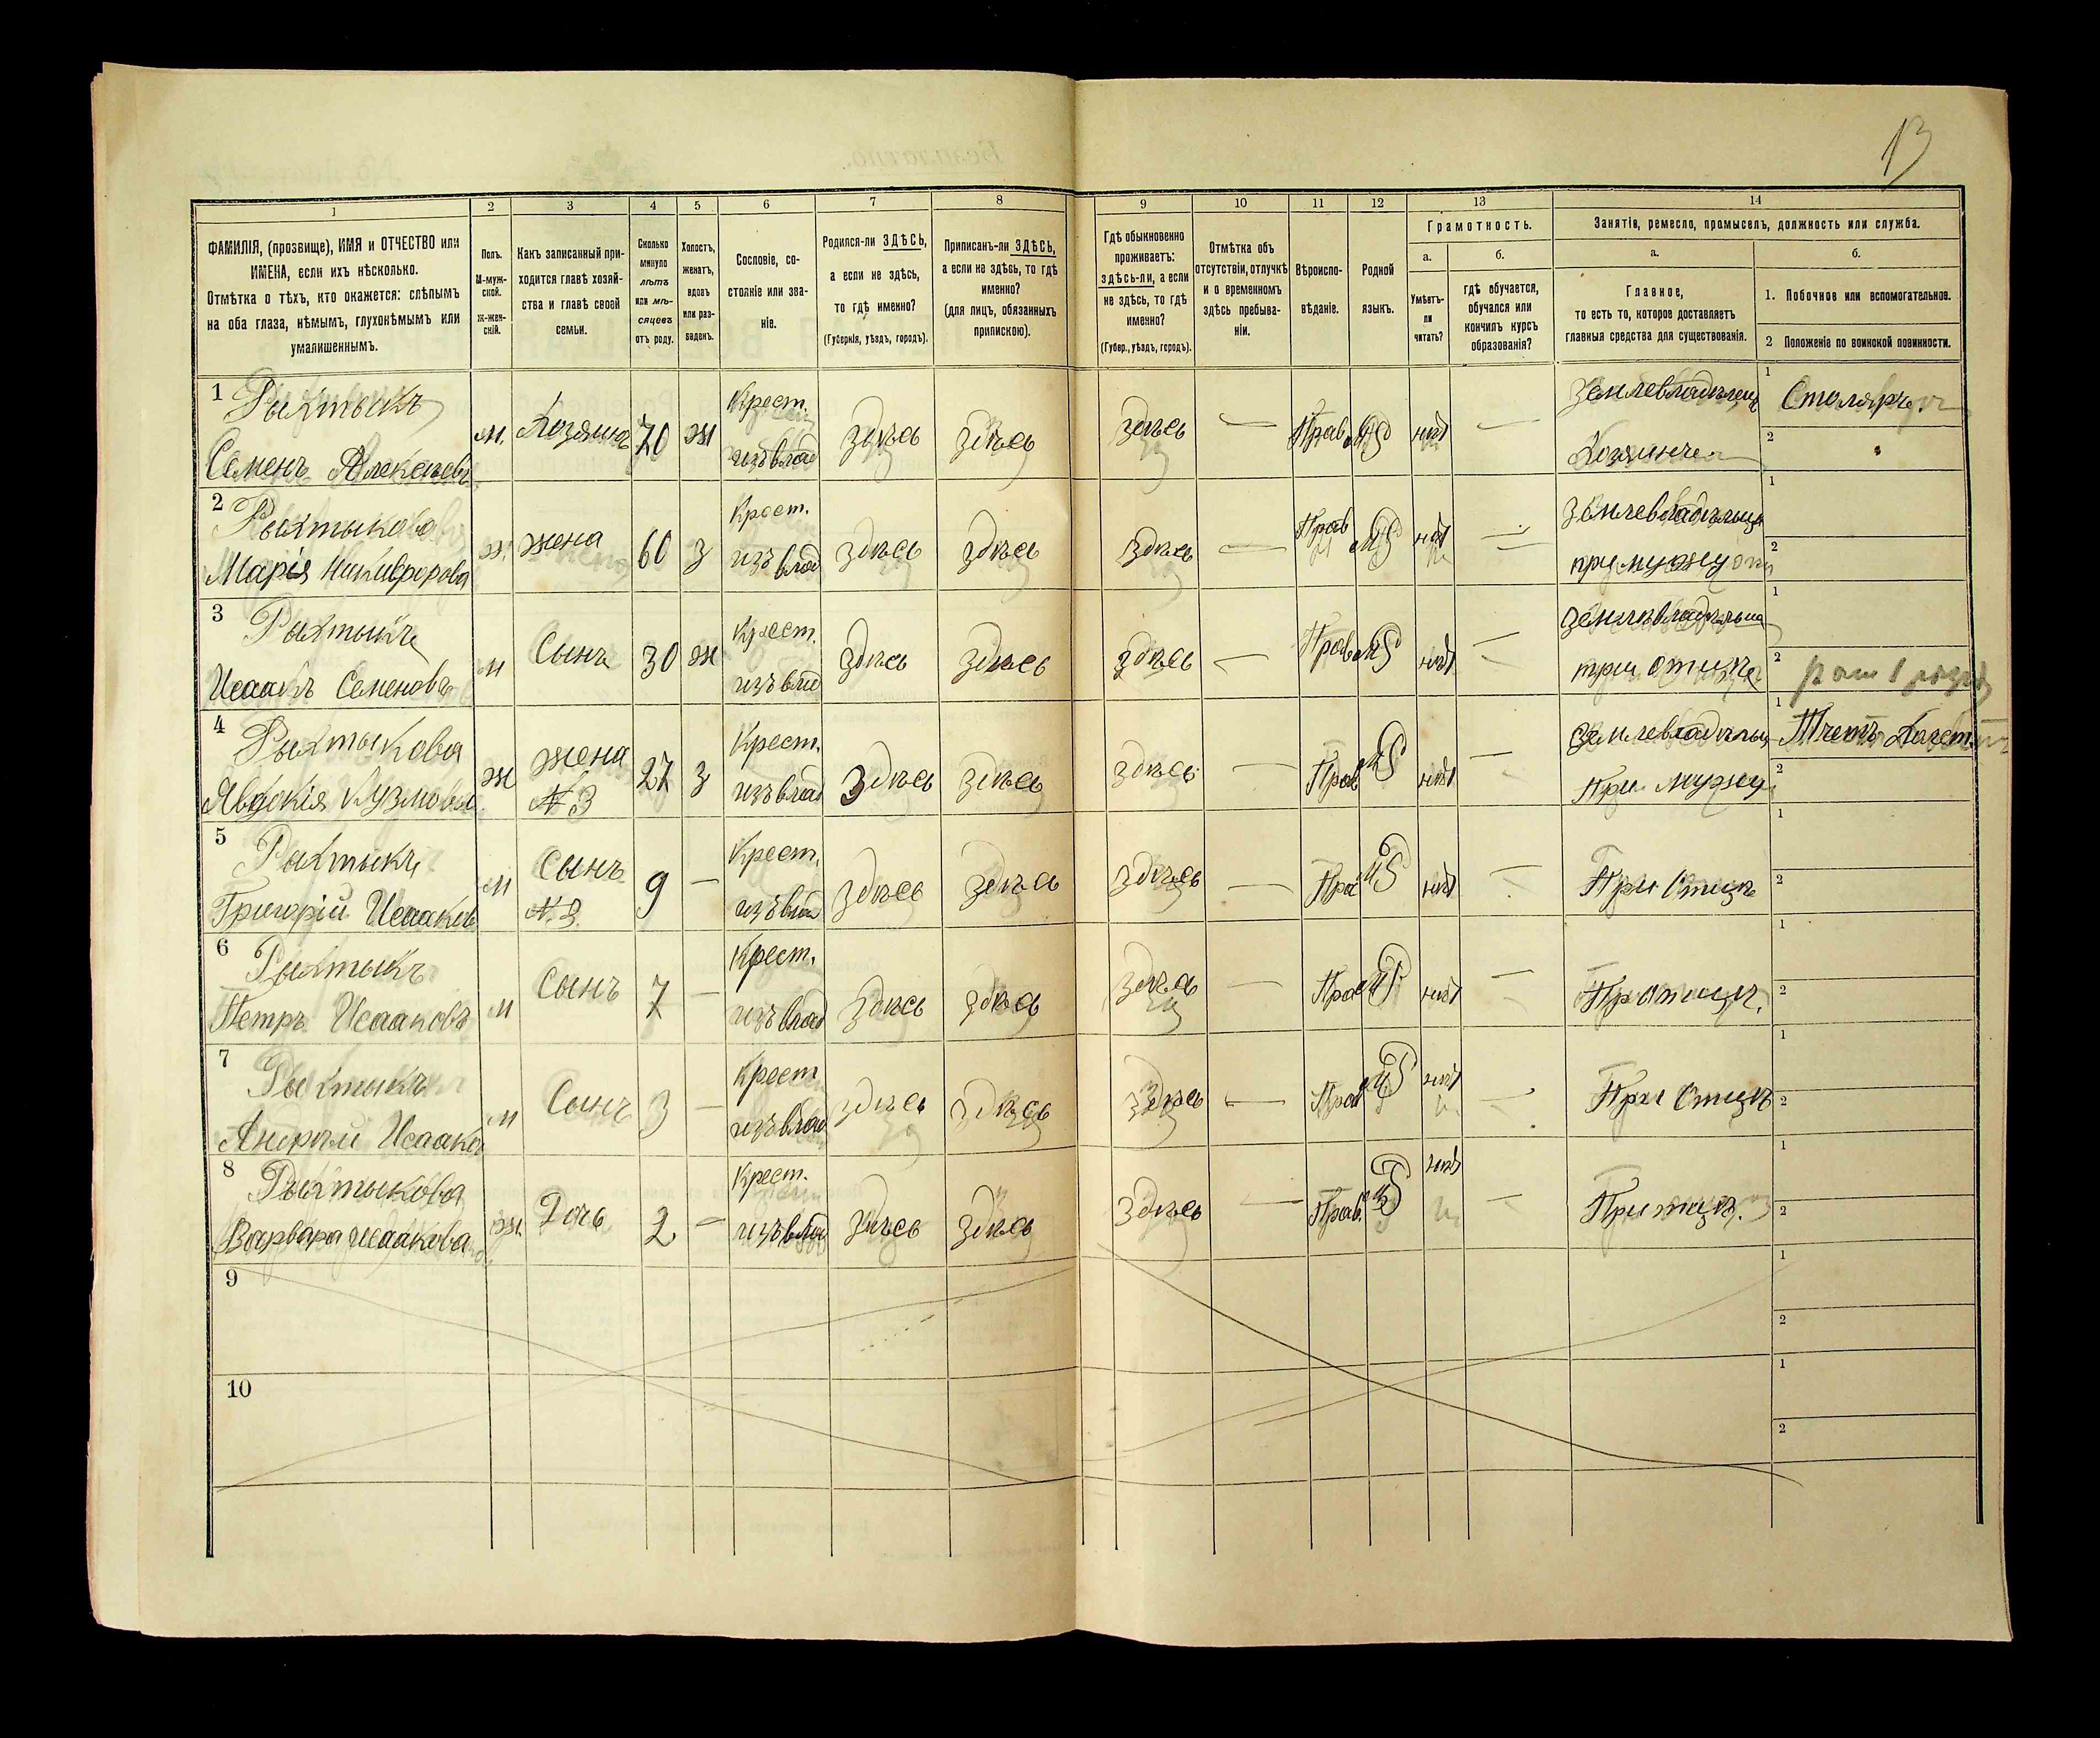 13
1 2 3 4 5 6 7 8 9 10 11 12 13 14
ФАМИЛІЯ, (прозвище), ИМЯ и ОТЧЕСТВО или
ИМЕНА, если ихъ нѣсколько.
Отмѣтка о тѣхъ, кто окажется: слѣпымъ
на оба глаза, нѣмымъ, глухонѣмымъ или
умалишеннымъ.
Полъ.
М-муж-
ской.
ж-жен-
скій.
Какъ записанный при-
ходится главѣ хозяй-
ства и главѣ своей
семьи.
Сколько
минуло
лѣтъ
или мѣ-
сяцевъ
отъ роду.
Холостъ,
женатъ,
вдовъ
или раз-
веденъ.
Сословіе, со-
стояніе или зва-
ніе.
Родился-ли ЗДѢСЬ,
а если не здѣсь,
то гдѣ именно?
(Губернія, уѣздъ, городъ).
Приписанъ-ли ЗДѢСЬ,
а если не здѣсь, то гдѣ
именно?
(для лицъ, обязанныхъ
припискою).
Гдѣ обыкновенно
проживаетъ:
здѣсь-ли, а если
не здѣсь, то гдѣ
именно?
(Губер., уѣздъ, городъ).
Отмѣтка объ
отсутствіи, отлучкѣ
и о временномъ
здѣсь пребыва-
ніи.
Вѣроиспо-
вѣданіе.
Родной
языкъ.
Грамотность.
а.
Умѣетъ-
ли
читать?
б.
гдѣ обучается,
обучался или
кончилъ курсъ
образованія?
Занятія, ремесло, промыселъ, должность или служба.
а.
Главное,
то есть то, которое доставляетъ
главныя средства для существованія.
б.
1. Побочное или вспомогательное.
2 Положеніе по воинской повинности.
1 Рыхтыкъ Крест. Землевладѣлец 1 Столяръ.
Семенъ Алексѣевъ м. Хозяинъ 70 ж изъ влад здѣсь здѣсь здѣсь — Прав М нѣт — Хозяинъ 2
2 Рыхтыкова Крест. Землевладѣльца 1
Марія Никифорова ж. жена 60 з изъ влад здѣсь здѣсь здѣсь — Прав М нѣт — при мужу 2
3 Рыхтыкъ Крест. Землевладѣльца 1
Исаакъ Семеновъ м Сынъ 30 ж изъ влад здѣсь здѣсь здѣсь — Прав М нѣт — при отцѣ 2 рат 1 разр
4 Рыхтыкова жена Крест. Землевладѣльца 1
Явдокія Кузмова ж № 3 27 з изъ влад здѣсь здѣсь здѣсь — Прав М нѣт — При мужу 2
5 Рыхтыкъ Сынъ Крест. 1
Григорій Исааковъ м № 3 9 — изъ влад здѣсь здѣсь здѣсь — Прав М нѣт — При Отцѣ 2
6 Рыхтыкъ Крест. 1
Петръ Исааковъ м Сынъ 7 — изъ влад здѣсь здѣсь здѣсь — Прав М нѣт — При отцѣ. 2
7 Рыхтыкъ Крест 1
Андрѣй Исааков м Сынъ 3 — изъ влад здѣсь здѣсь здѣсь — Прав М нѣт — При Отцѣ 2
8 Рыхтыкова Крест. 1
Варвара Исаакова ж. Дочь 2 — изъ влад здѣсь здѣсь здѣсь — Прав. М нѣт — При отцѣ. 2
9 1
2
10 1
2